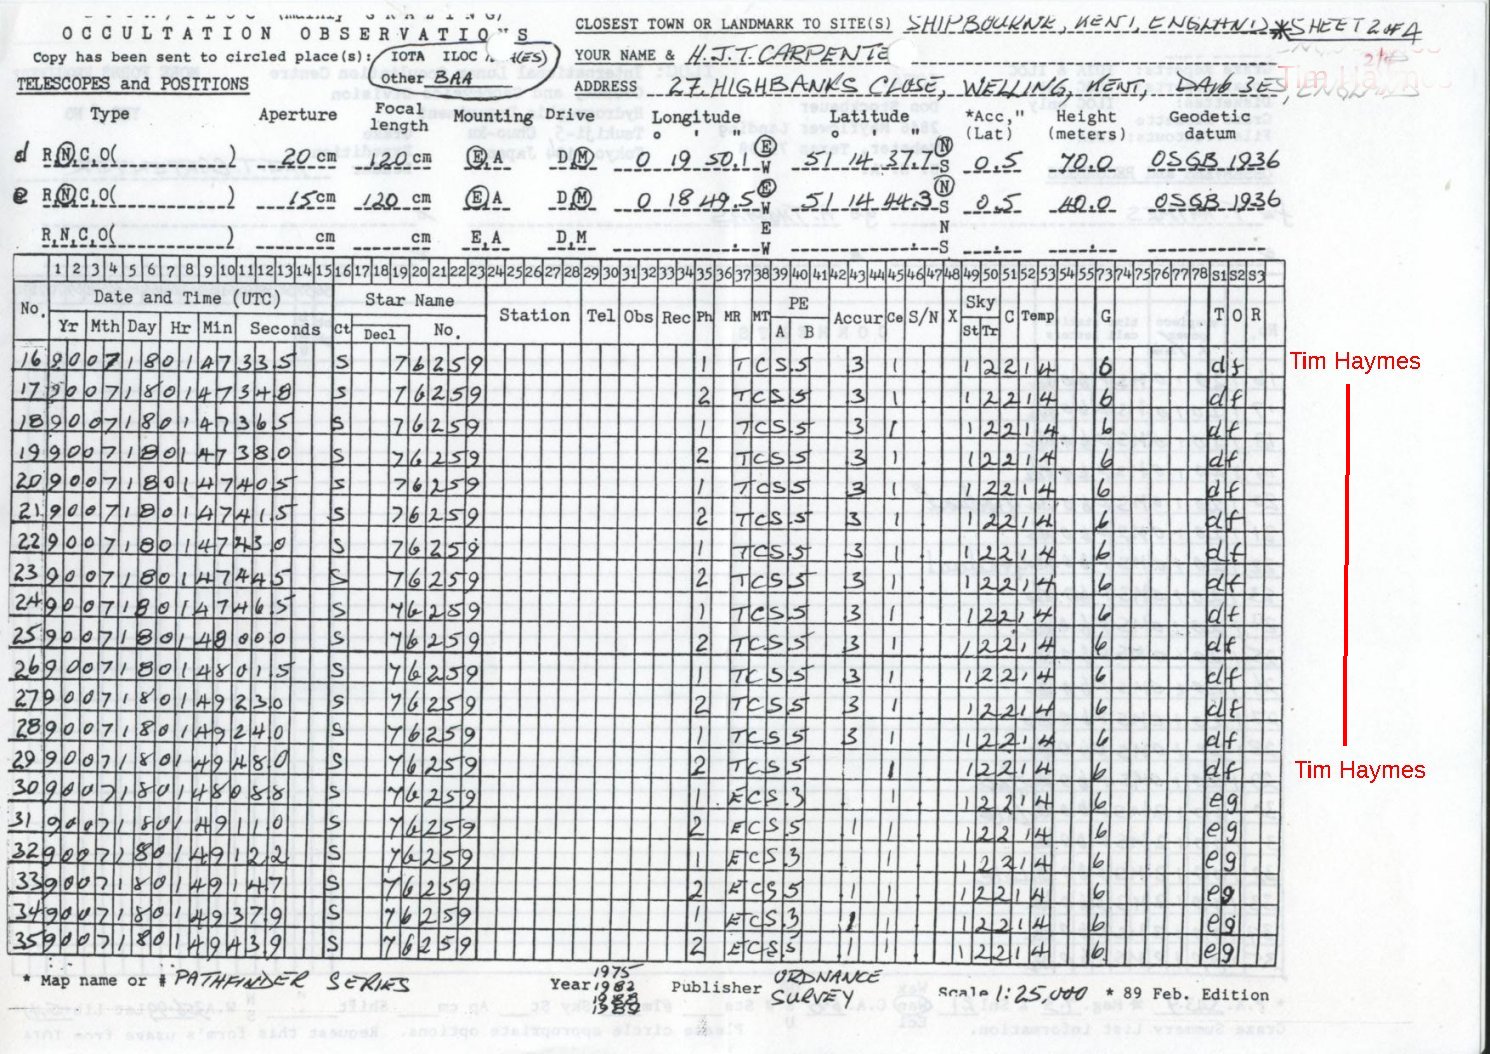 OCCULTATION OBSERVATIONS
CLOSEST TOWN OR LANDMARK TO SITE(S) SHIPBOURNE, KENT, ENGLAND *SHEET 2 of 4
Copy has been sent to circled place(s): IOTA ILOC (ES)
Other BAA
YOUR NAME & H.J.T. CARPENTE
ADDRESS 27, HIGHBANKS CLOSE, WELLING, KENT, DA16 3ES,
TELESCOPES and POSITIONS
Type Aperture Focal length Mounting Drive Longitude ° ' " Latitude ° ' " *Acc," (Lat) Height (meters) Geodetic datum
d R,N,C,O( ) 20 cm 120 cm E,A D,M 0 19 50.1 E W 51 14 37.7 N S 0.5 70.0 OSGB 1936
e R,N,C,O( ) 15 cm 120 cm E,A D,M 0 18 49.5 E W 51 14 44.3 N S 0.5 40.0 OSGB 1936
R,N,C,O( ) cm cm E,A D,M E W N S
1 2 3 4 5 6 7 8 9 10 11 12 13 14 15 16 17 18 19 20 21 22 23 24 25 26 27 28 29 30 31 32 33 34 35 36 37 38 39 40 41 42 43 44 45 46 47 48 49 50 51 52 53 54 55 73 74 75 76 77 78 S1 S2 S3
No. Date and Time (UTC) Star Name Station Tel Obs Rec Ph MR MT PE Accur Ce S/N X Sky C Temp G T O R
Yr Mth Day Hr Min Seconds Ct Decl No. A B St Tr
16 9007180147335 S 76259 1 TCS.5 .3 1 . 12214 6 df
17 9007180147348 S 76259 2 TCS.5 .3 1 . 12214 6 df
18 9007180147365 S 76259 1 TCS.5 .3 1 . 12214 6 df
19 9007180147380 S 76259 2 TCS.5 .3 1 . 12214 6 df
20 9007180147405 S 76259 1 TCS5 .3 1 . 12214 6 df
21 900718014741.5 S 76259 2 TCS.5 .3 1 . 12214 6 df
22 9007180147430 S 76259 1 TCS.5 .3 1 . 12214 6 df
23 9007180147445 S 76259 2 TCS.5 .3 1 . 12214 6 df
24 900718014746.5 S 76259 1 TCS.5 .3 1 . 12214 6 df
25 9007180148000 S 76259 2 TCS.5 .3 1 . 12214 6 df
26 900718014801.5 S 76259 1 TCS.5 .3 1 . 12214 6 df
27 9007180149230 S 76259 2 TCS.5 .3 1 . 12214 6 df
28 9007180149240 S 76259 1 TCS.5 .3 1 . 12214 6 df
29 9007180149480 S 76259 2 TCS.5 . 1 . 12214 6 df
30 9007180148088 S 76259 1 ECS.3 . 1 . 12214 6 eg
31 9007180149110 S 76259 2 ECS.5 .1 1 . 12214 6 eg
32 9007180149122 S 76259 1 ECS.3 . 1 . 12214 6 eg
33 9007180149147 S 76259 2 ECS.5 .1 1 . 12214 6 eg
34 9007180149379 S 76259 1 ECS.3 .1 1 . 12214 6 eg
35 9007180149439 S 76259 2 ECS.5 .1 1 . 12214 6 eg
Tim Haymes
Tim Haymes
* Map name or # PATHFINDER SERIES Year 1975 1982 1988 1989 Publisher ORDNANCE SURVEY Scale 1:25,000 * 89 Feb. Edition